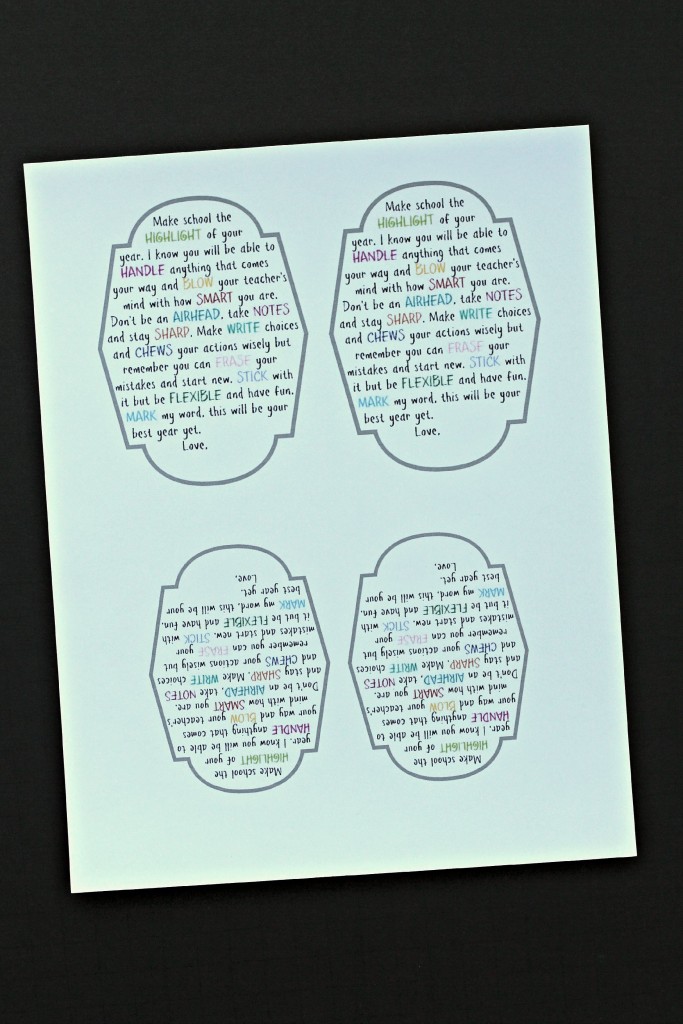 Make school the
HIGHLIGHT of your
year. I know you will be able to
HANDLE anything that comes
your way and BLOW your teacher's
mind with how SMART you are.
Don't be an AIRHEAD, take NOTES
and stay SHARP. Make WRITE choices
and CHEWS your actions wisely but
remember you can ERASE your
mistakes and start new. STICK with
it but be FLEXIBLE and have fun.
MARK my word, this will be your
best year yet.
Love,
Make school the
HIGHLIGHT of your
year. I know you will be able to
HANDLE anything that comes
your way and BLOW your teacher's
mind with how SMART you are.
Don't be an AIRHEAD, take NOTES
and stay SHARP. Make WRITE choices
and CHEWS your actions wisely but
remember you can ERASE your
mistakes and start new. STICK with
it but be FLEXIBLE and have fun.
MARK my word, this will be your
best year yet.
Love,
Make school the
HIGHLIGHT of your
year. I know you will be able to
HANDLE anything that comes
your way and BLOW your teacher's
mind with how SMART you are.
Don't be an AIRHEAD, take NOTES
and stay SHARP. Make WRITE choices
and CHEWS your actions wisely but
remember you can ERASE your
mistakes and start new. STICK with
it but be FLEXIBLE and have fun.
MARK my word, this will be your
best year yet.
Love,
Make school the
HIGHLIGHT of your
year. I know you will be able to
HANDLE anything that comes
your way and BLOW your teacher's
mind with how SMART you are.
Don't be an AIRHEAD, take NOTES
and stay SHARP. Make WRITE choices
and CHEWS your actions wisely but
remember you can ERASE your
mistakes and start new. STICK with
it but be FLEXIBLE and have fun.
MARK my word, this will be your
best year yet.
Love,